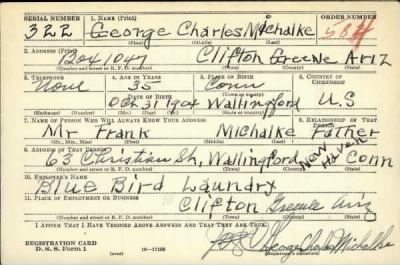 SERIAL NUMBER 1. NAME (Print) ORDER NUMBER
322 George Charles Michalke 564
(First) (Middle) (Last)
2. ADDRESS (Print)
Box 1047 Clifton Greenle Ariz
(Number and street or R. F. D. number) (Town) (County) (State)
3. TELEPHONE 4. AGE IN YEARS 5. PLACE OF BIRTH 6. COUNTRY OF CITIZENSHIP
None 35 Conn
DATE OF BIRTH (Town or county)
Oct 31 1904 Wallingford U.S
(Exchange) (Number) (Mo.) (Day) (Yr.) (State or country)
7. NAME OF PERSON WHO WILL ALWAYS KNOW YOUR ADDRESS 8. RELATIONSHIP OF THAT PERSON
Mr Frank Michalke Father
(Mr., Mrs., Miss) (First) (Middle) (Last)
9. ADDRESS OF THAT PERSON
63 Christian St, Wallingford New Haven Conn
(Number and street or R. F. D. number) (Town) (County) (State)
10. EMPLOYER'S NAME
Blue Bird Laundry
11. PLACE OF EMPLOYMENT OR BUSINESS
Clifton Greenlee Ariz
(Number and street or R. F. D. number) (Town) (County) (State)
I AFFIRM THAT I HAVE VERIFIED ABOVE ANSWERS AND THAT THEY ARE TRUE.
REGISTRATION CARD George Charles Michalke
D. S. S. Form 1 (over) 16-17105 (Registrant's signature)